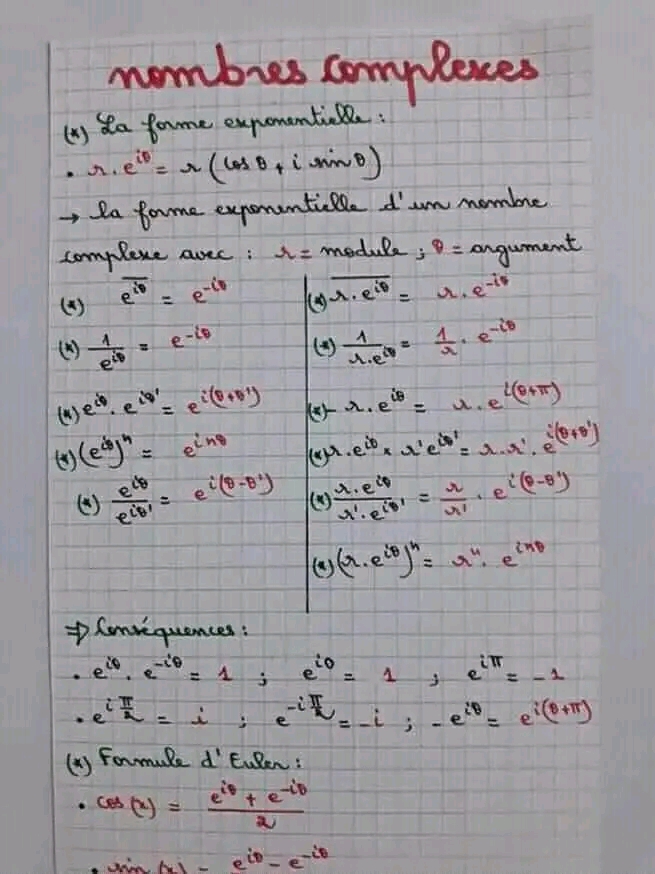 nombres complexes
(*) La forme exponentielle :
• r . e^{iθ} = r (cos θ + i sin θ)
→ la forme exponentielle d'un nombre
complexe avec : r = module ; θ = argument
(*) \overline{e^{iθ}} = e^{-iθ}
(*) \frac{1}{e^{iθ}} = e^{-iθ}
(*) e^{iθ} . e^{iθ'} = e^{i(θ+θ')}
(*) (e^{iθ})^n = e^{inθ}
(*) \frac{e^{iθ}}{e^{iθ'}} = e^{i(θ-θ')}
(*) \overline{r . e^{iθ}} = r . e^{-iθ}
(*) \frac{1}{r.e^{iθ}} = \frac{1}{r} . e^{-iθ}
(*) - r . e^{iθ} = r . e^{i(θ+π)}
(*) r . e^{iθ} × r' e^{iθ'} = r . r' . e^{i(θ+θ')}
(*) \frac{r . e^{iθ}}{r' . e^{iθ'}} = \frac{r}{r'} . e^{i(θ-θ')}
(*) (r . e^{iθ})^n = r^n . e^{inθ}
⇒ Conséquences :
• e^{iθ} . e^{-iθ} = 1 ; e^{i0} = 1 ; e^{iπ} = -1
• e^{i\frac{π}{2}} = i ; e^{-i\frac{π}{2}} = -i ; - e^{iθ} = e^{i(θ+π)}
(*) Formule d'Euler :
• cos(x) = \frac{e^{iθ} + e^{-iθ}}{2}
• sin(x) = e^{iθ} - e^{-iθ}